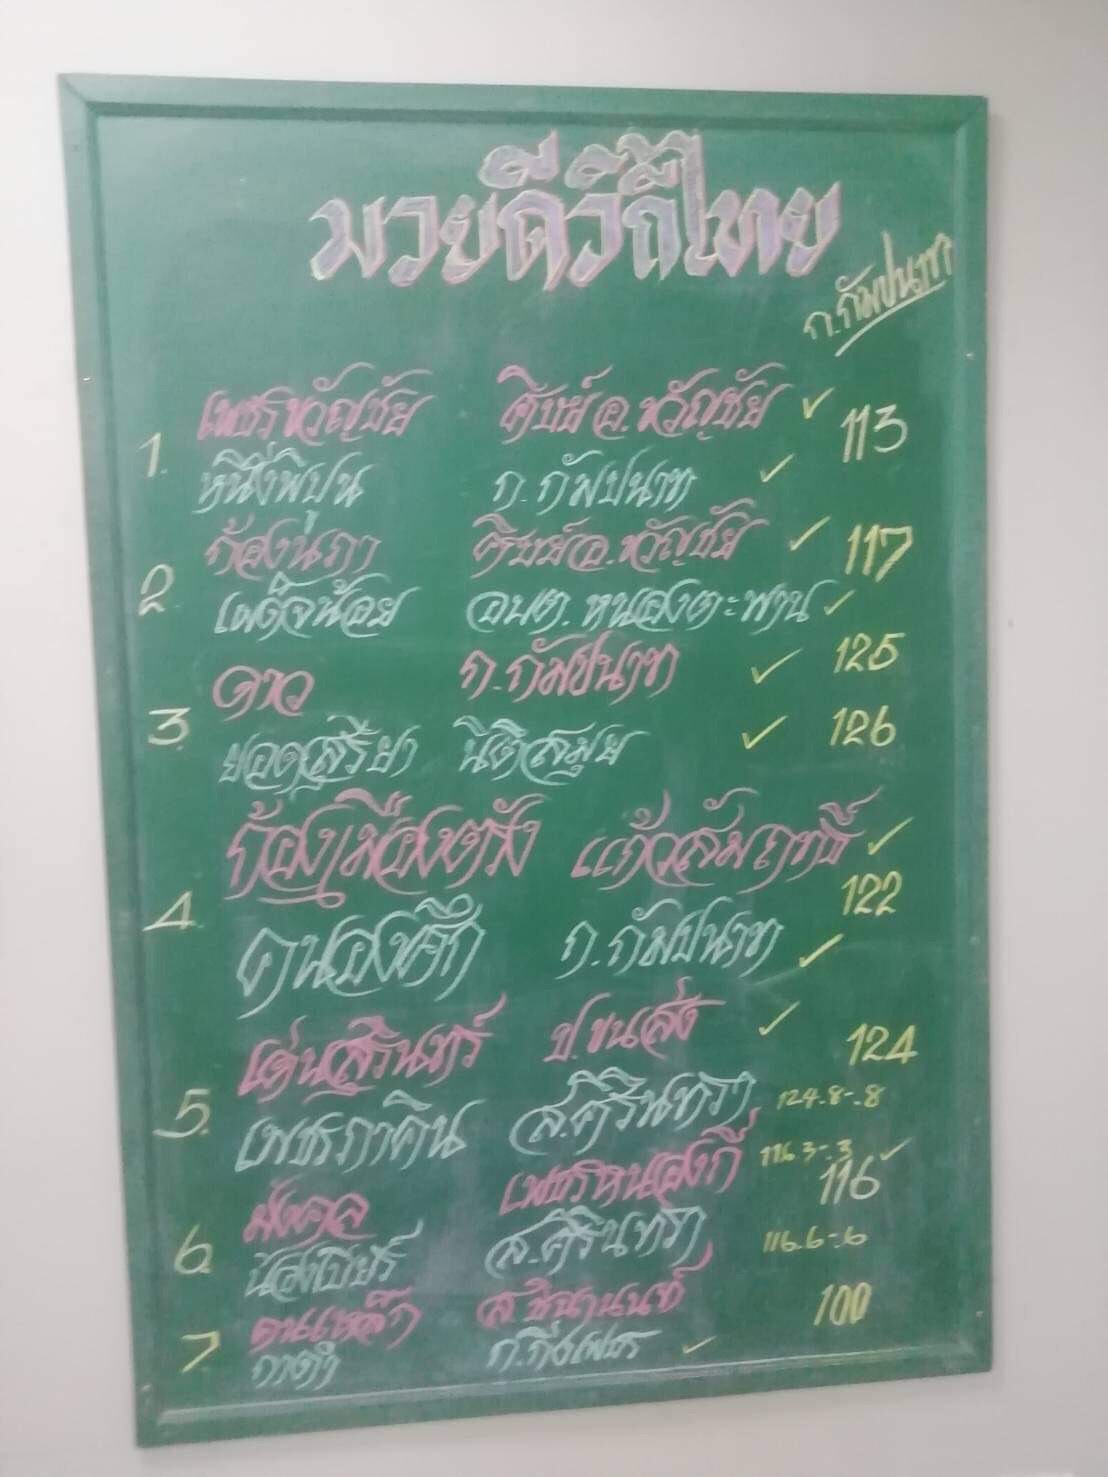 มวยดีวิถีไทย
ก.กัมปนาท
เพชรขวัญชัย ศิษย์อ.ขวัญชัย ✓
1. 113
หนึ่งพิปูน ก.กัมปนาท ✓
ก้องนภา ศิษย์อ.ขวัญชัย ✓ 117
2. เผด็จน้อย อบต.หนองตะพาน ✓
ดาว ก.กัมปนาท ✓ 125
3. ยอดสุริยา นิติสมุย ✓ 126
ก้องเมืองตรัง แก้วสัมฤทธิ์ ✓
4. 122
คนองศึก ก.กัมปนาท ✓
เด่นสุรินทร์ ป.ขนส่ง ✓ 124
5. เพชรภาคิน ส.ศิรินทรา 124.8-.8
มังคล เพชรหนองกี่ 116.3-.3 ✓
116
6. น้องเบียร์ ส.ศิรินทรา 116.6-.6
ตนเหล็ก ส.ชินานนท์ 100
7. กาดำ ก.กิ่งเพชร ✓